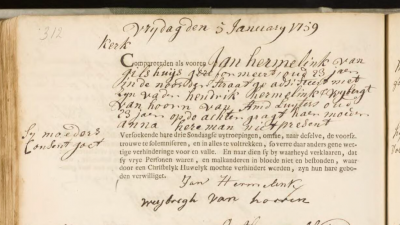 312
Vrijdag den 5 January 1759
kerk
Compareerden als vooren Jan hermelink van
gereformeert oud 23 jaer
in de
zyn vader hendrik hermelink & wybregt
van hooren van Amst oud
23 jaer op de achter gragt haer moeder
anna hereman niet present
zyn moeders
Consent goet
Versoekende hare drie Sondaagse uytroepingen, omme, naar deselve, de voorsz.
trouwe te solemniseren, en in alles te voltrekken, soverre daar anders gene wet-
tige verhinderinge voor en valle. En naar dien sy by waarheyd verklaarden, dat
sy vrye Personen waren, en malkanderen in bloede niet en bestonden, waar
door een Christelyk Huwelyk mochte verhindert werden, zyn hun hare gebo-
den verwilliget.
Jan Hermelink
weybregh van hooren